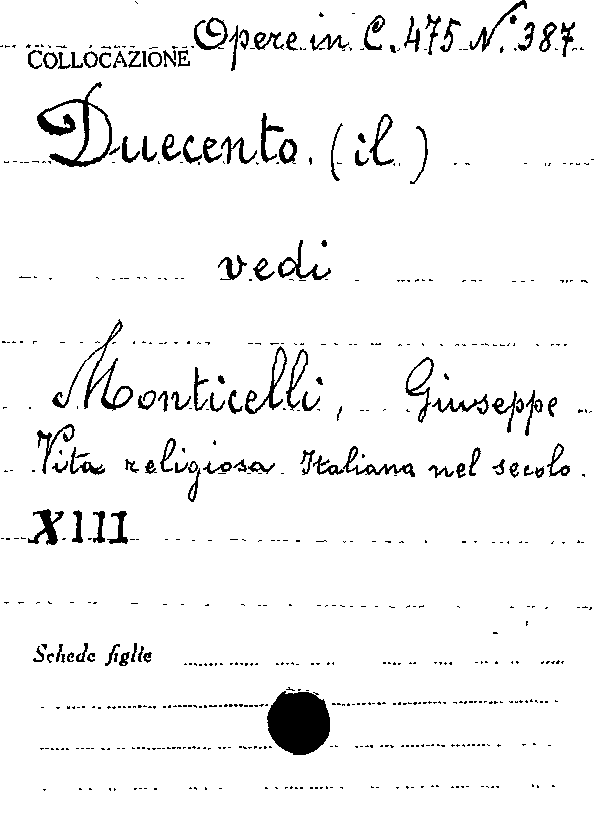 COLLOCAZIONE Opere in C. 475 N.° 387
Duecento. (il)
vedi
Monticelli, Giuseppe
Vita religiosa Italiana nel secolo.
XIII
Schede figlie